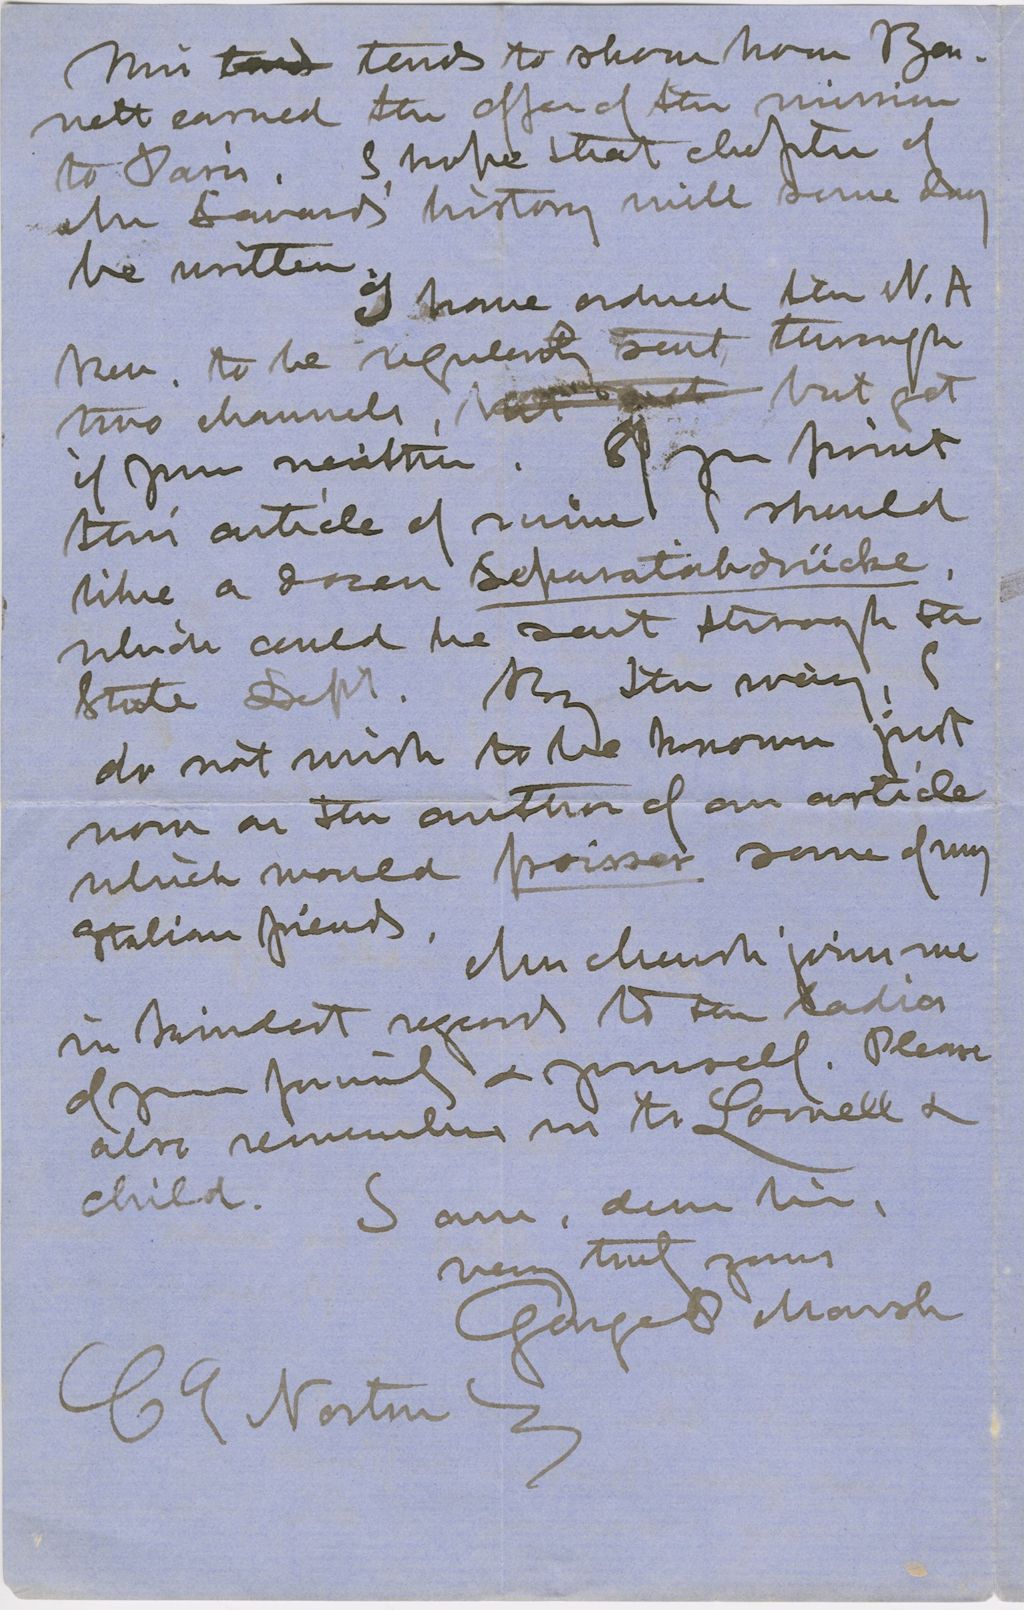 This tends tends to show how Ben-
nett earned the offer of the mission
to Paris. I hope that chapter of
Mr Seward's history will some day
be written.
I have ordered the N. A
Rev. to be regularly sent through
two channels, but get but get
it from neither. If you print
this article of mine I should
like a dozen Separatabdrücke,
which could be sent through the
State Dept. By the way, I
do not wish to be known just
now as the author of an article
which would froisser some of my
Italian friends.
Mrs Marsh joins me
in kindest regards to the ladies
of your family & yourself. Please
also remember me to Lowell &
Child. I am, dear Sir,
very truly yours
George P Marsh
C E Norton